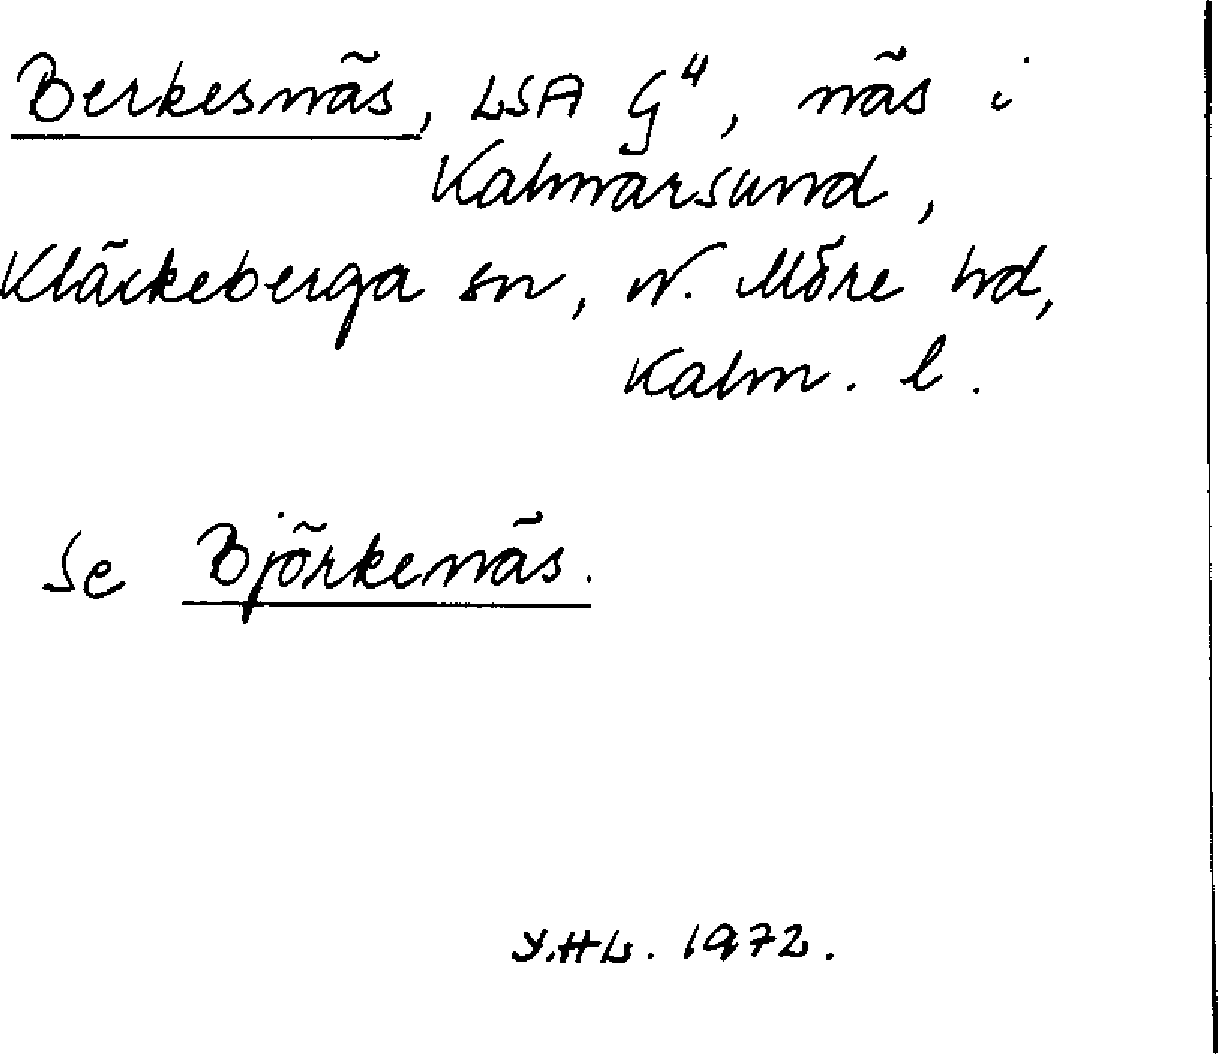 Berkesnäs, LSA G⁴, näs i
Kalmarsund,
Kläckeberga sn, N. Möre hd,
Kalm. l.
Se Björkenäs.
Y.HL. 1972.